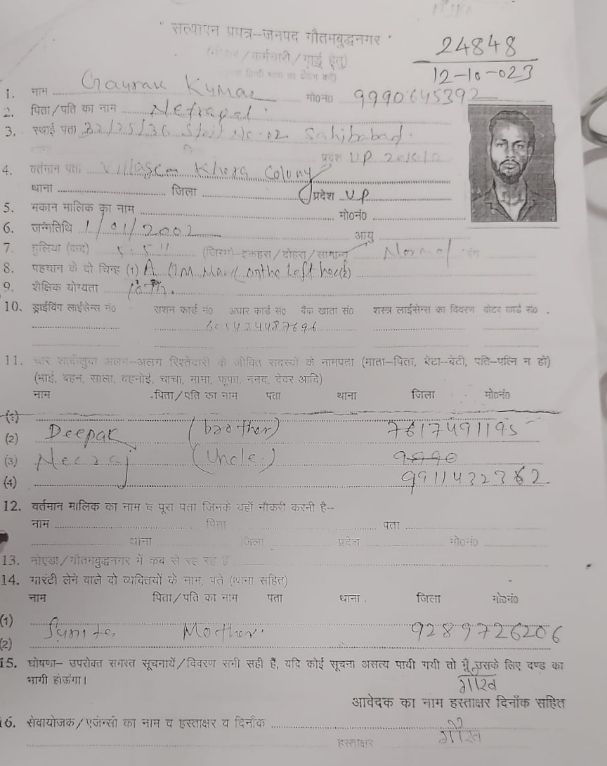 सत्यापन प्रपत्र–जनपद गौतमबुद्धनगर
24848
12-10-023
1. नाम Gaurav Kumar मो०नं० 9990645392
2. पिता/पति का नाम Netrapal
3. स्थाई पता 32/25/36 Sahibabad
प्रदेश UP
4. वर्तमान पता Village Khora Colony
थाना जिला प्रदेश UP
5. मकान मालिक का नाम मो०नं०
6. जन्मतिथि 1/01/2002 आयु
7. हुलिया (कद) 5.5" (जिस्म)-इकहरा/दोहरा/सामान्य Normal रंग
8. पहचान के दो चिन्ह (1) A on the left
9. शैक्षिक योग्यता 10th.
10. ड्राईविंग लाईसेन्स नं० राशन कार्ड नं० आधार कार्ड नं० बैंक खाता सं० शस्त्र लाईसेन्स का विवरण वोटर कार्ड सं०
11. चार शादीशुदा अलग-अलग रिश्तेदारों के जीवित सदस्यों के नामपता (माता-पिता, बेटा-बेटी, पति-पत्नि न हों)
(भाई, बहन, साला, बहनोई, चाचा, मामा, फूफा, ननद, देवर आदि)
नाम पिता/पति का नाम पता थाना जिला मो०नं०
(1)
(2) Deepak (brother) 7617491195
(3) Neeraj (Uncle)
(4) 9911432362
12. वर्तमान मालिक का नाम व पूरा पता जिनके यहाँ नौकरी करनी है–
नाम पिता पता
थाना जिला प्रदेश मो०नं०
13. नोएडा/गौतमबुद्धनगर में कब से रह रहे हैं
14. गारंटी लेने वाले दो व्यक्तियों के नाम, पते (थाना सहित)
नाम पिता/पति का नाम पता थाना जिला मो०नं०
(1) Sunita Mother 9289726206
(2)
15. घोषणा– उपरोक्त समस्त सूचनायें/विवरण सभी सही हैं, यदि कोई सूचना असत्य पायी गयी तो मैं उसके लिए दण्ड का
भागी होऊंगा।
गौरव
आवेदक का नाम हस्ताक्षर दिनाँक सहित
16. सेवायोजक/एजेन्सी का नाम व हस्ताक्षर व दिनाँक गौरव
हस्ताक्षर